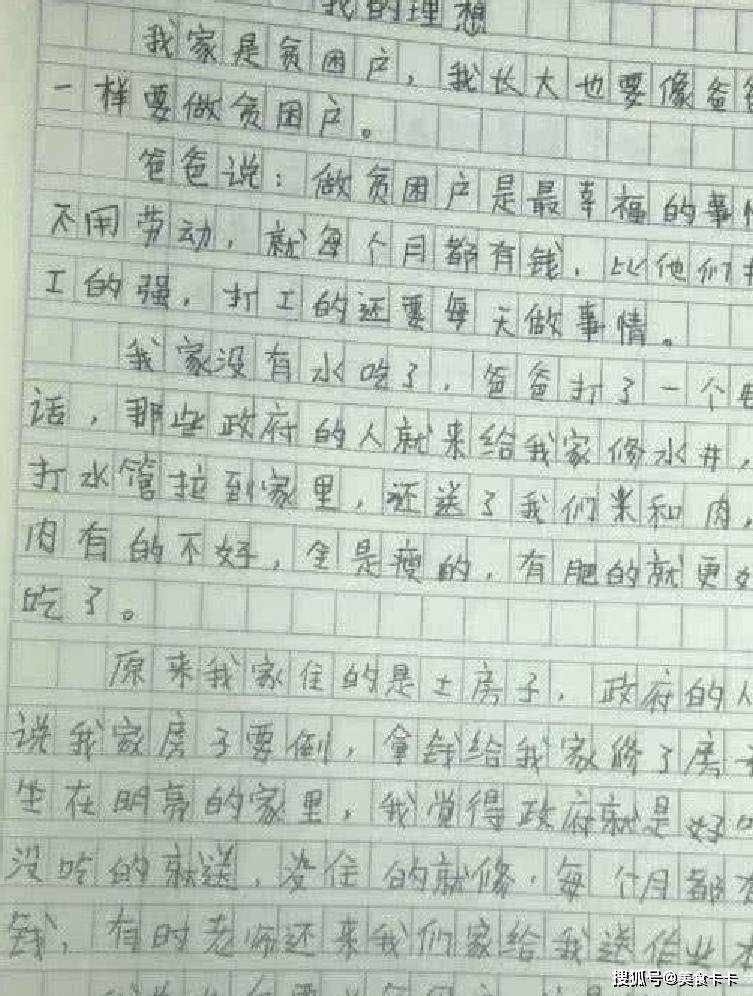 我的理想
我家是贫困户，我长大也要像爸
一样要做贫困户。
爸爸说：做贫困户是最幸福的事
不用劳动，就每个月都有钱，比他们
工的强，打工的还要每天做事情。
我家没有水吃了，爸爸打了一个
话，那些政府的人就来给我家修水井，
打水管拉到家里，还送了我们米和肉，
肉有的不好，全是瘦的，有肥的就更
吃了。
原来我家住的是土房子，政府的人
说我家房子要倒，拿钱给我家修了房
坐在明亮的家里，我觉得政府就是好
没吃的就送，没住的就修，每个月都有
钱，有时老师还来我们家给我送作业本
搜狐号@美食卡卡